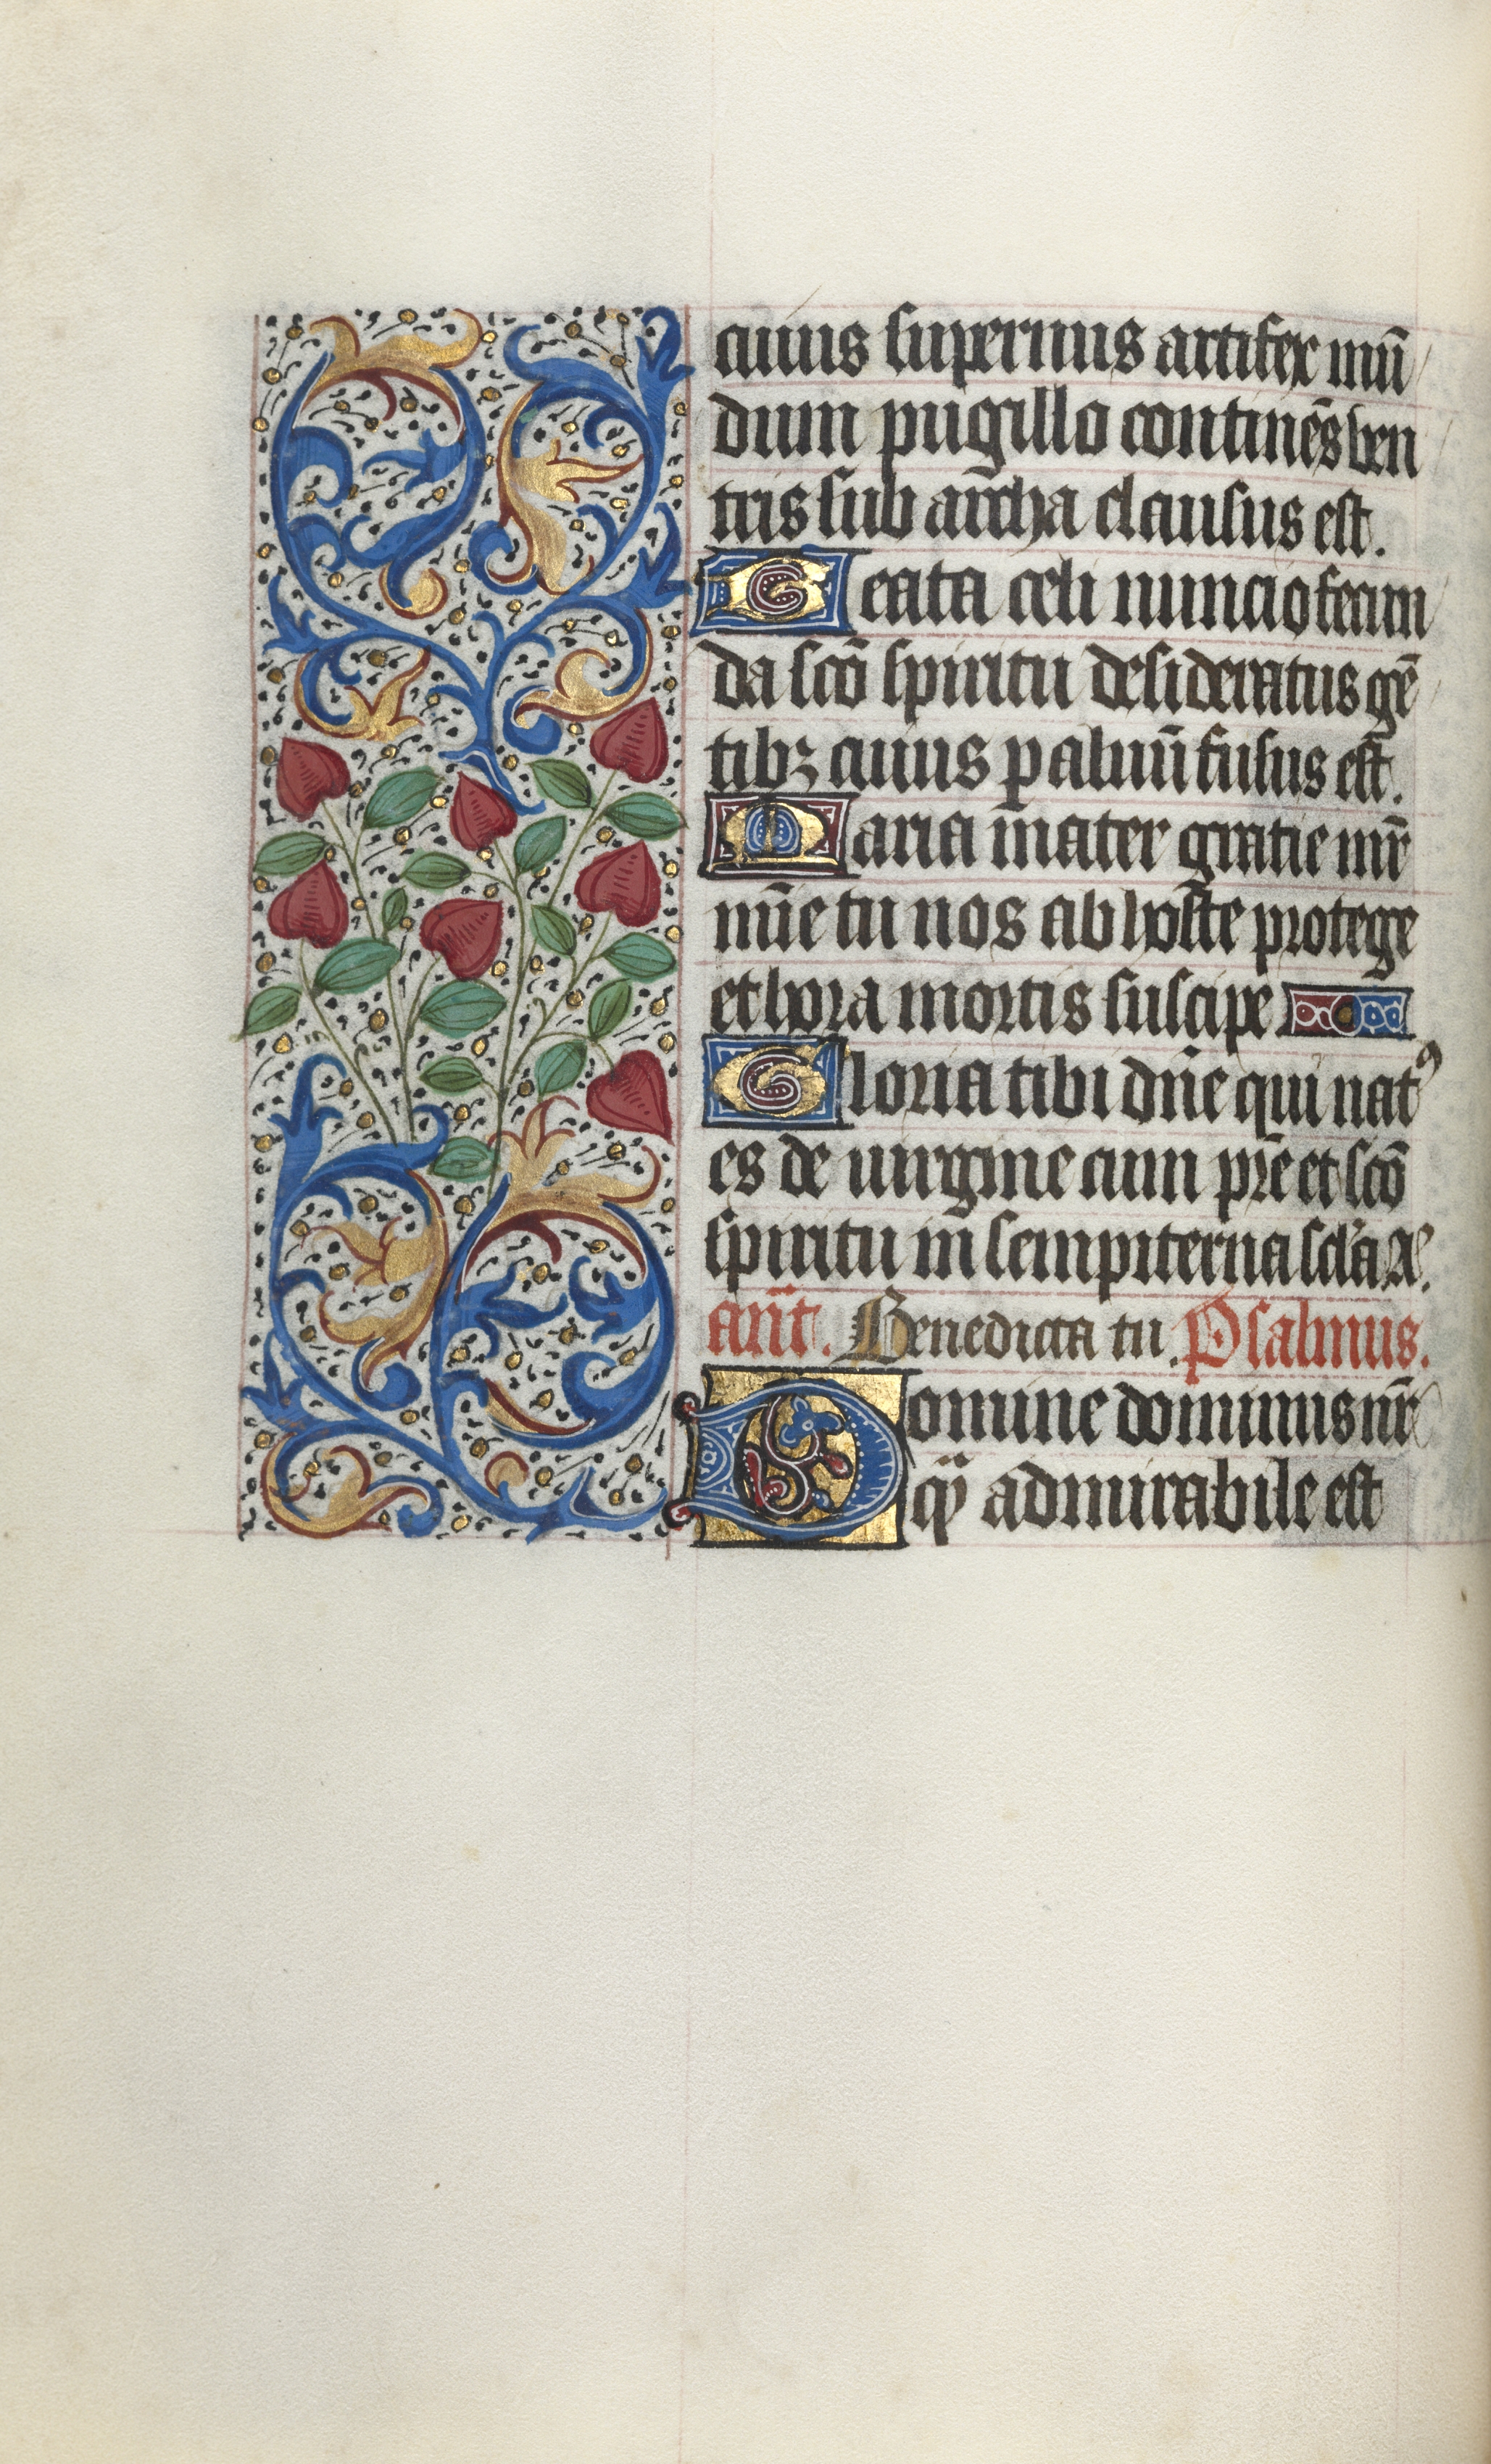 cuius supernus artifex mū
dum pugillo continēs ven
tris sub archa clausus est.
Geata celi nuncio fecun
da sc̄o spiritu desideratus gē
tibꝫ cuius p aluū fusus est.
Maria mater gratie mr̄
mīe tu nos ab hoste protege
et hora mortis suscipe
Gloria tibi dn̄e qui natꝰ
es de uirgine cum pr̄e et sc̄o
spiritu in sempiterna scl̄a Ae.
ant̄. Benedicta tu. Psalmus.
Domine dominus nr̄
qꝫ admirabile est